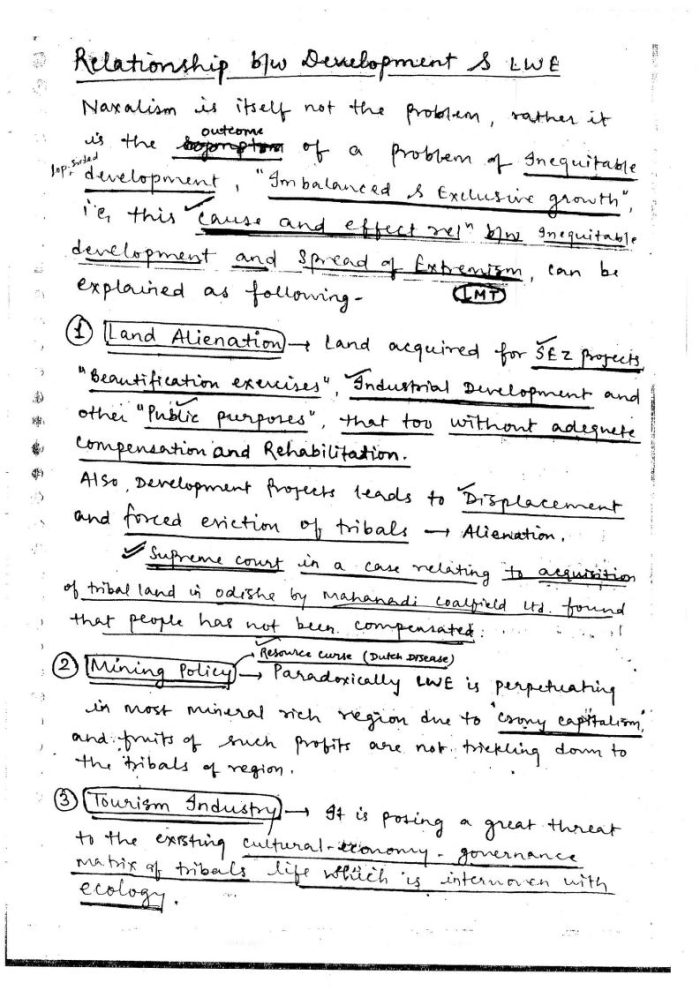 Relationship b/w Development & LWE
Naxalism is itself not the problem, rather it
outcome
is the symptom of a problem of Inequitable
lop-sided
development, "Imbalanced & Exclusive growth",
i.e, this cause and effect reln b/w Inequitable
development and Spread of Extremism, can be
explained as following-
LMT
① Land Alienation → Land acquired for SEZ projects
"Beautification exercises", Industrial Development and
other "Public purposes", that too without adequete
compensation and Rehabilitation.
Also, Development Projects leads to Displacement
and forced eviction of tribals → Alienation.
Supreme court in a case relating to acquisition
of tribal land in odisha by Mahanadi Coalfield Ltd. found
that people has not been compensated.
Resource curse (Dutch Disease)
② Mining Policy → Paradoxically LWE is perpetuating
in most mineral rich region due to "crony capitalism"
and fruits of such profits are not trickling down to
the tribals of region.
③ Tourism Industry → It is posing a great threat
to the existing cultural-economy-governance
matrix of tribals life which is interwoven with
ecology.